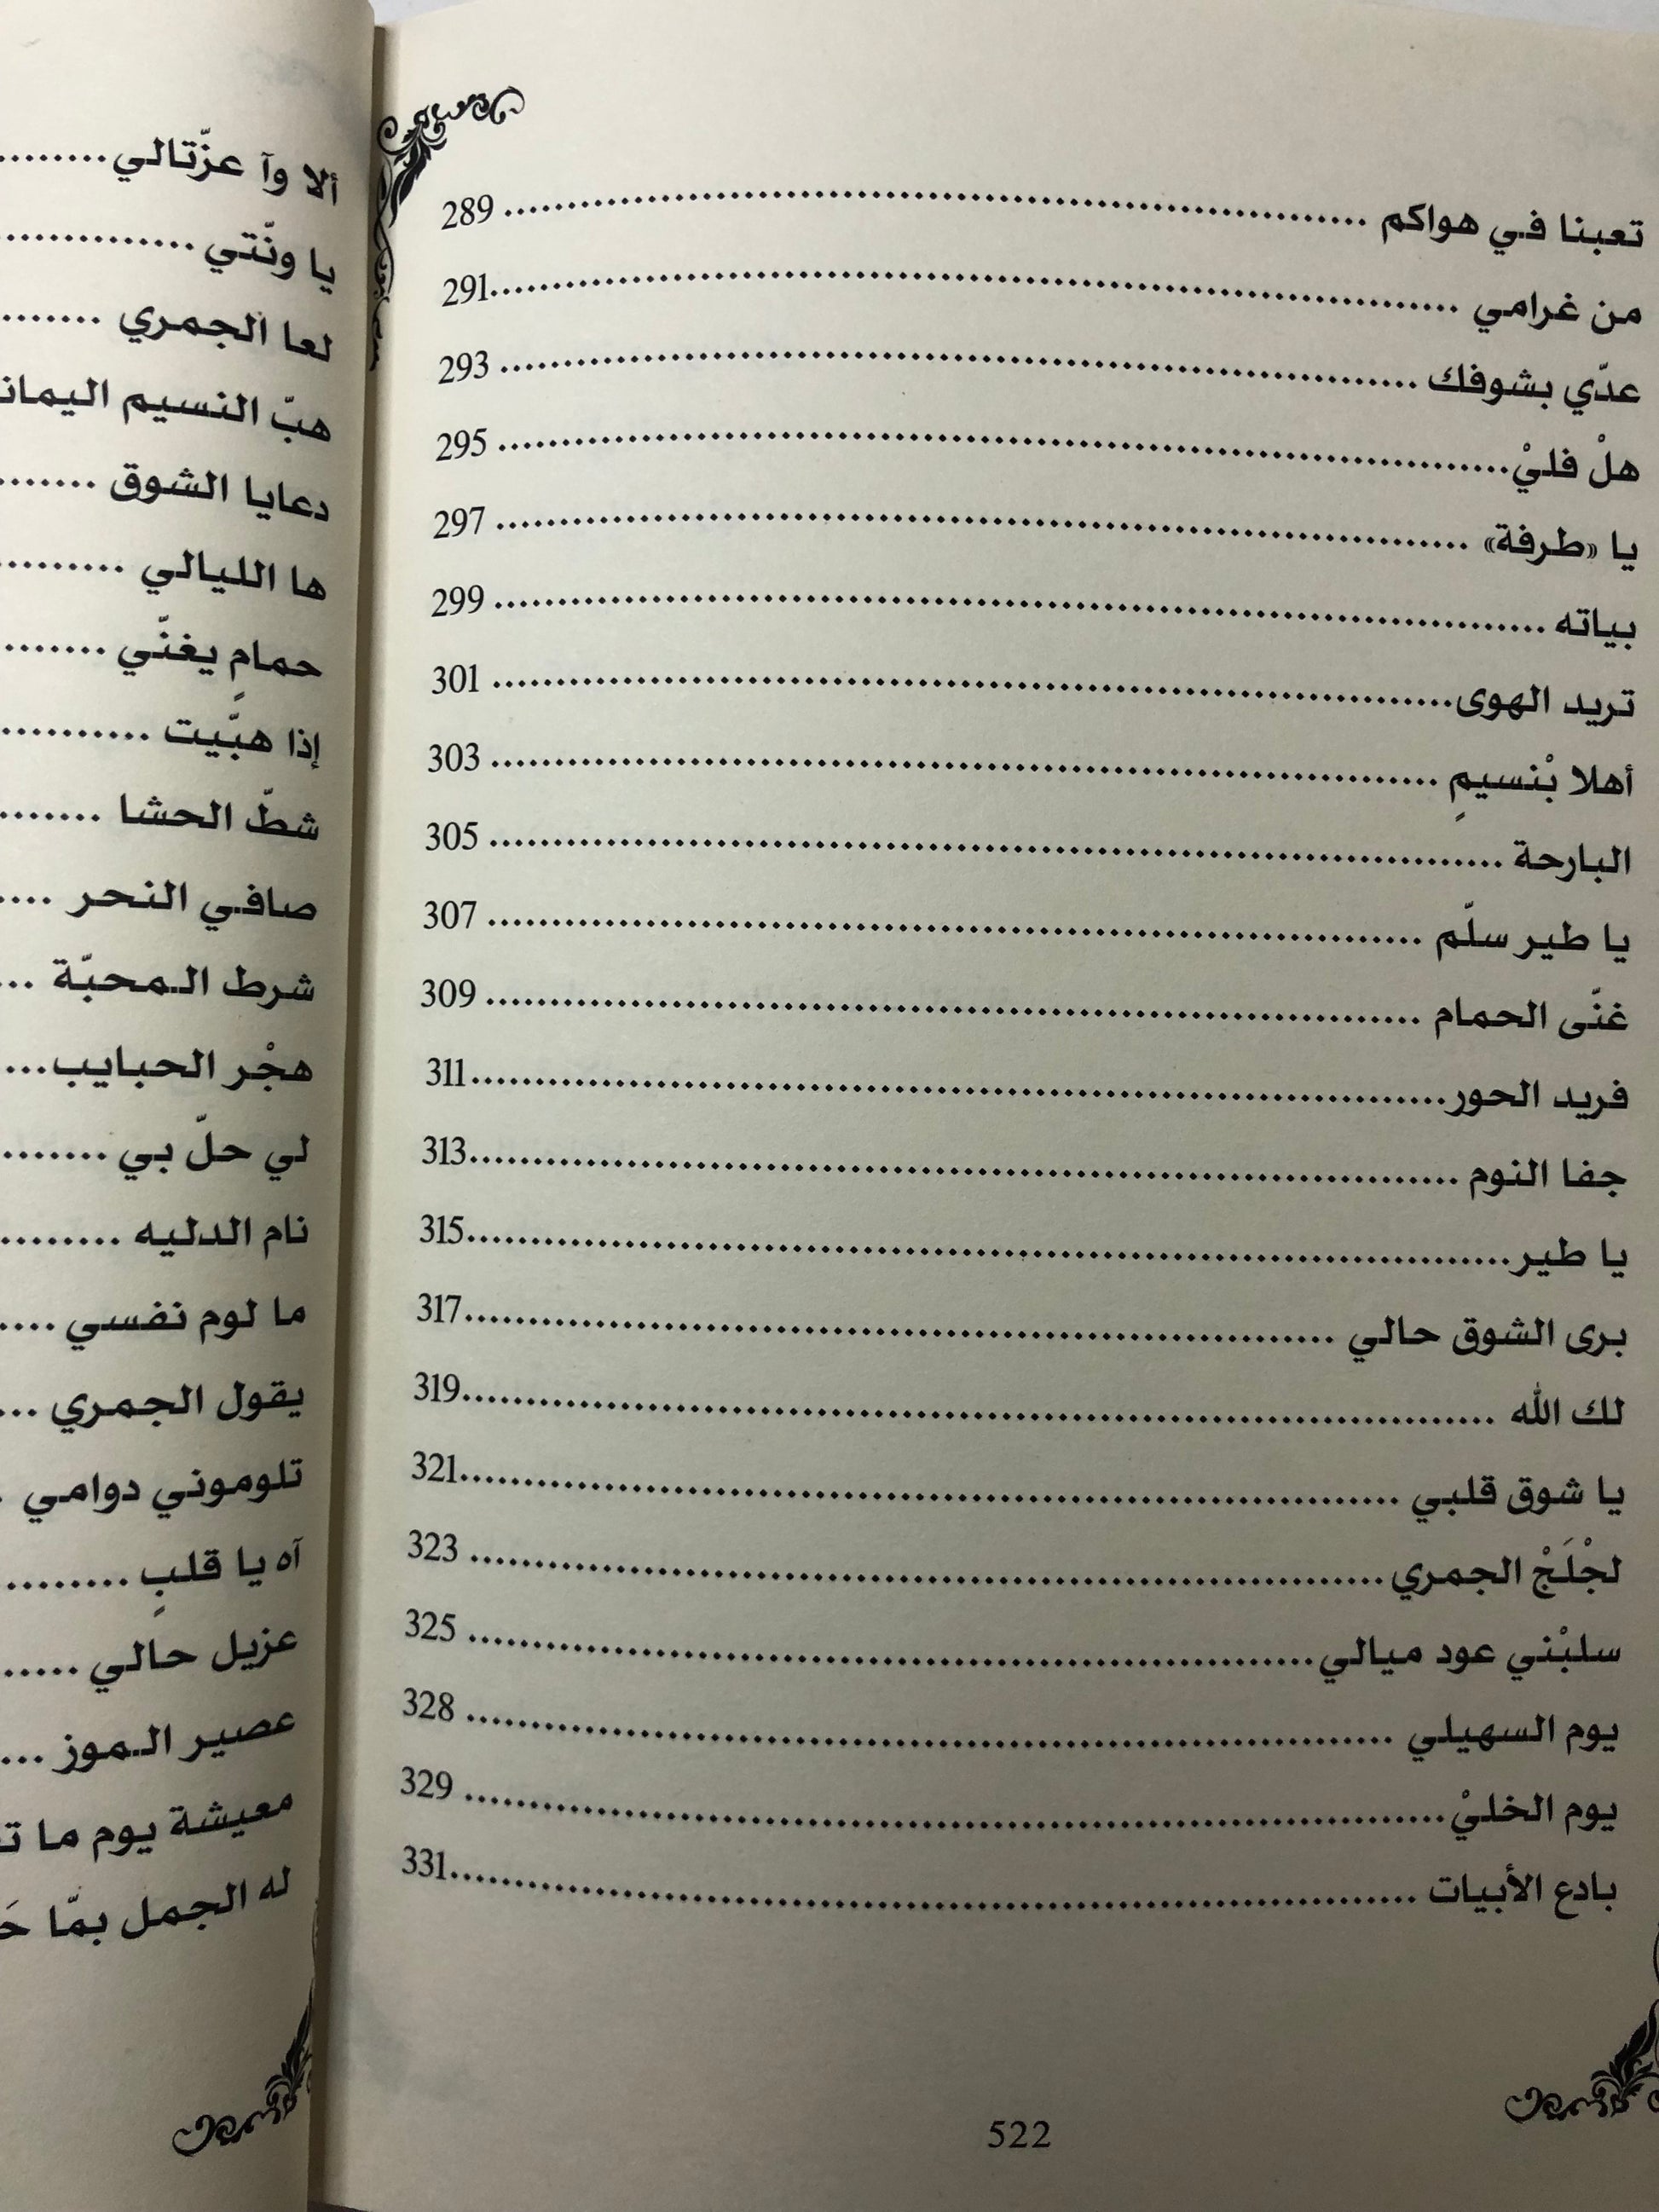 تعبنا في هواكم ........ 289
من غرامي ........ 291
عدّي بشوفك ........ 293
هلْ فليْ ........ 295
يا «طرفة» ........ 297
بياته ........ 299
تريد الهوى ........ 301
أهلا بْنسيمٍ ........ 303
البارحة ........ 305
يا طير سلّم ........ 307
غنّى الحمام ........ 309
فريد الحور ........ 311
جفا النوم ........ 313
يا طير ........ 315
برى الشوق حالي ........ 317
لك الله ........ 319
يا شوق قلبي ........ 321
لجْلَجْ الجمري ........ 323
سلبْني عود ميالي ........ 325
يوم السهيلي ........ 328
يوم الخليْ ........ 329
بادع الأبيات ........ 331
522
ألا وآ عزّتالي ........
يا ونّتي ........
لعا الجمري ........
هبّ النسيم
دعايا الشوق ........
ها الليالي ........
حمامٍ يغنّي ........
إذا هبّيت ........
شطّ الحشا ........
صافي النحر ....
شرط المحبّة ...
هجْر الحبايب ...
لي حلّ بي ........
نام الدليه ........
ما لوم نفسي ....
يقول الجمري ...
تلوموني دوامي .
آه يا قلبٍ ........
عزيل حالي .....
عصير الموز ...
معيشة يوم ما
له الجمل بمّا